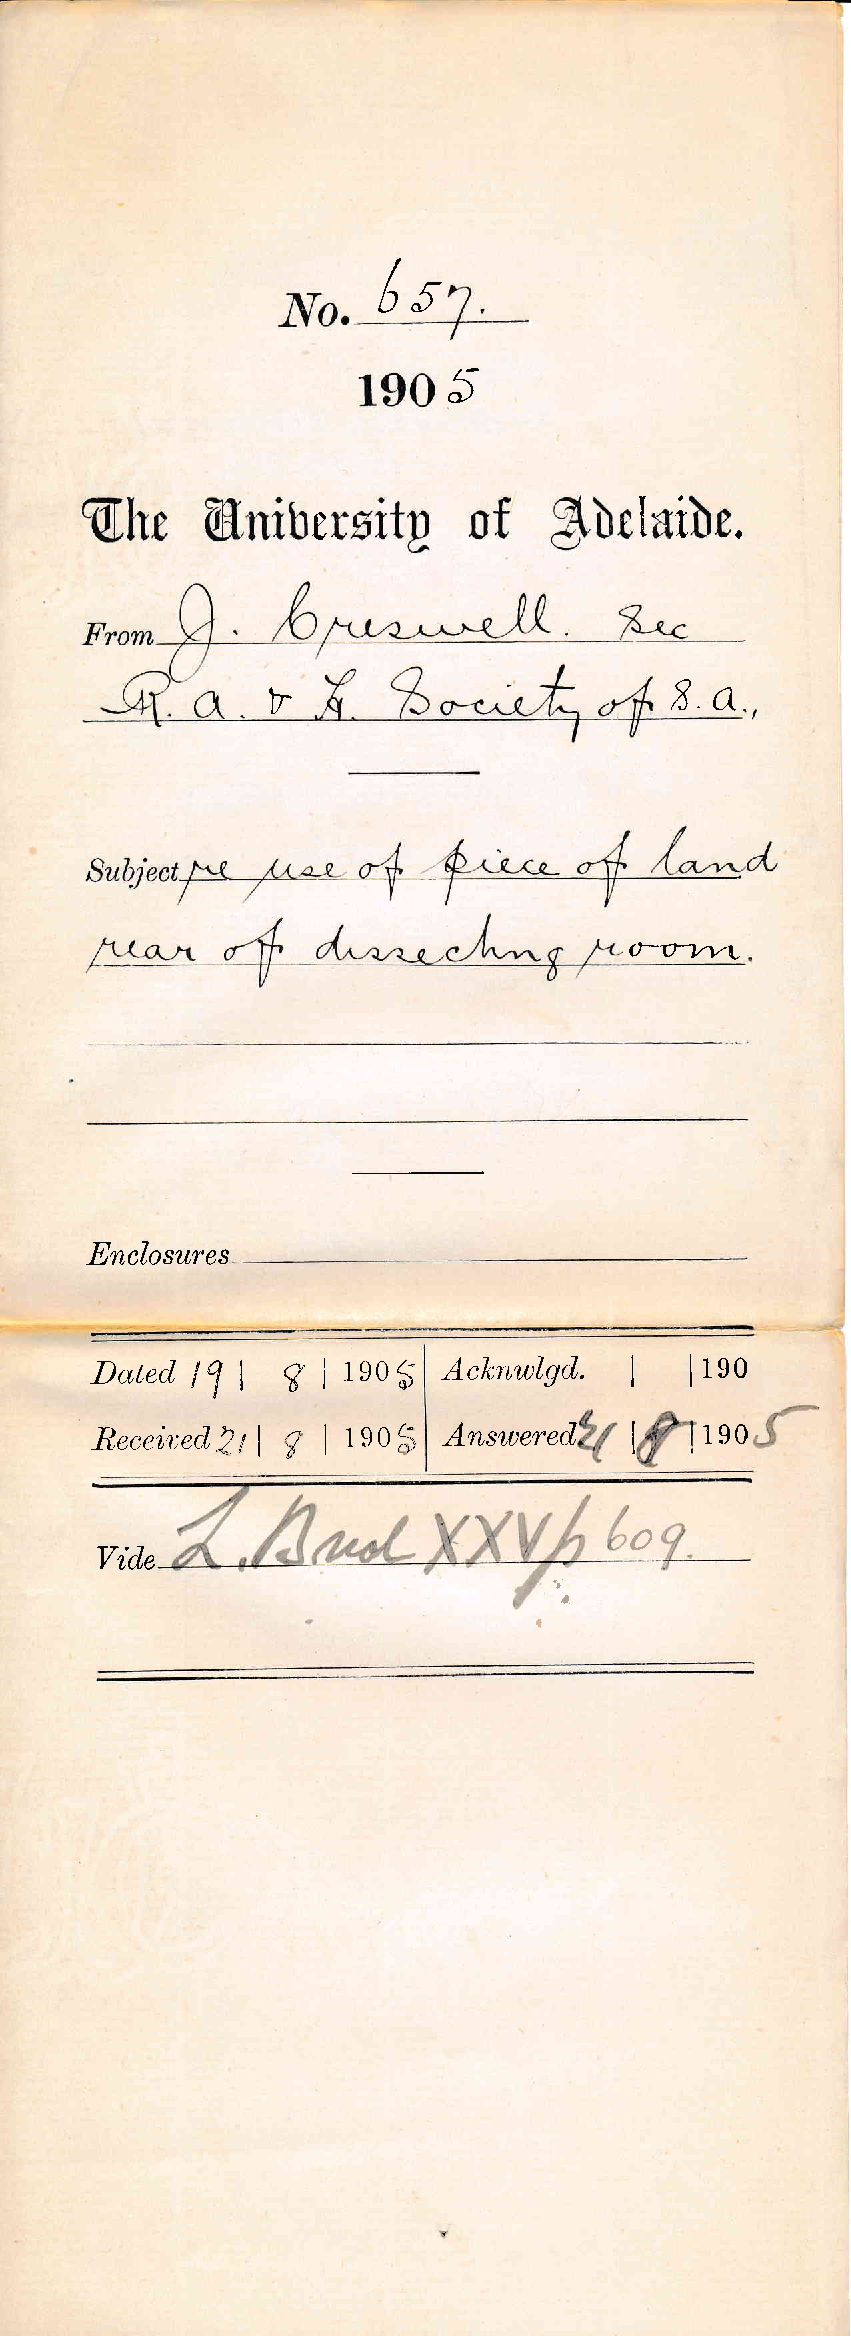 No. 657.
1905
The University of Adelaide.
From J. Creswell. Sec
R. A. & H. Society of S. A.,
Subject re use of piece of land
rear of dissecting room.
Enclosures
Dated 19 | 8 | 1905 Acknwlgd. | | 190
Received 21 | 8 | 1905 Answered 21 | 8 | 1905
Vide L. XXV p 609.